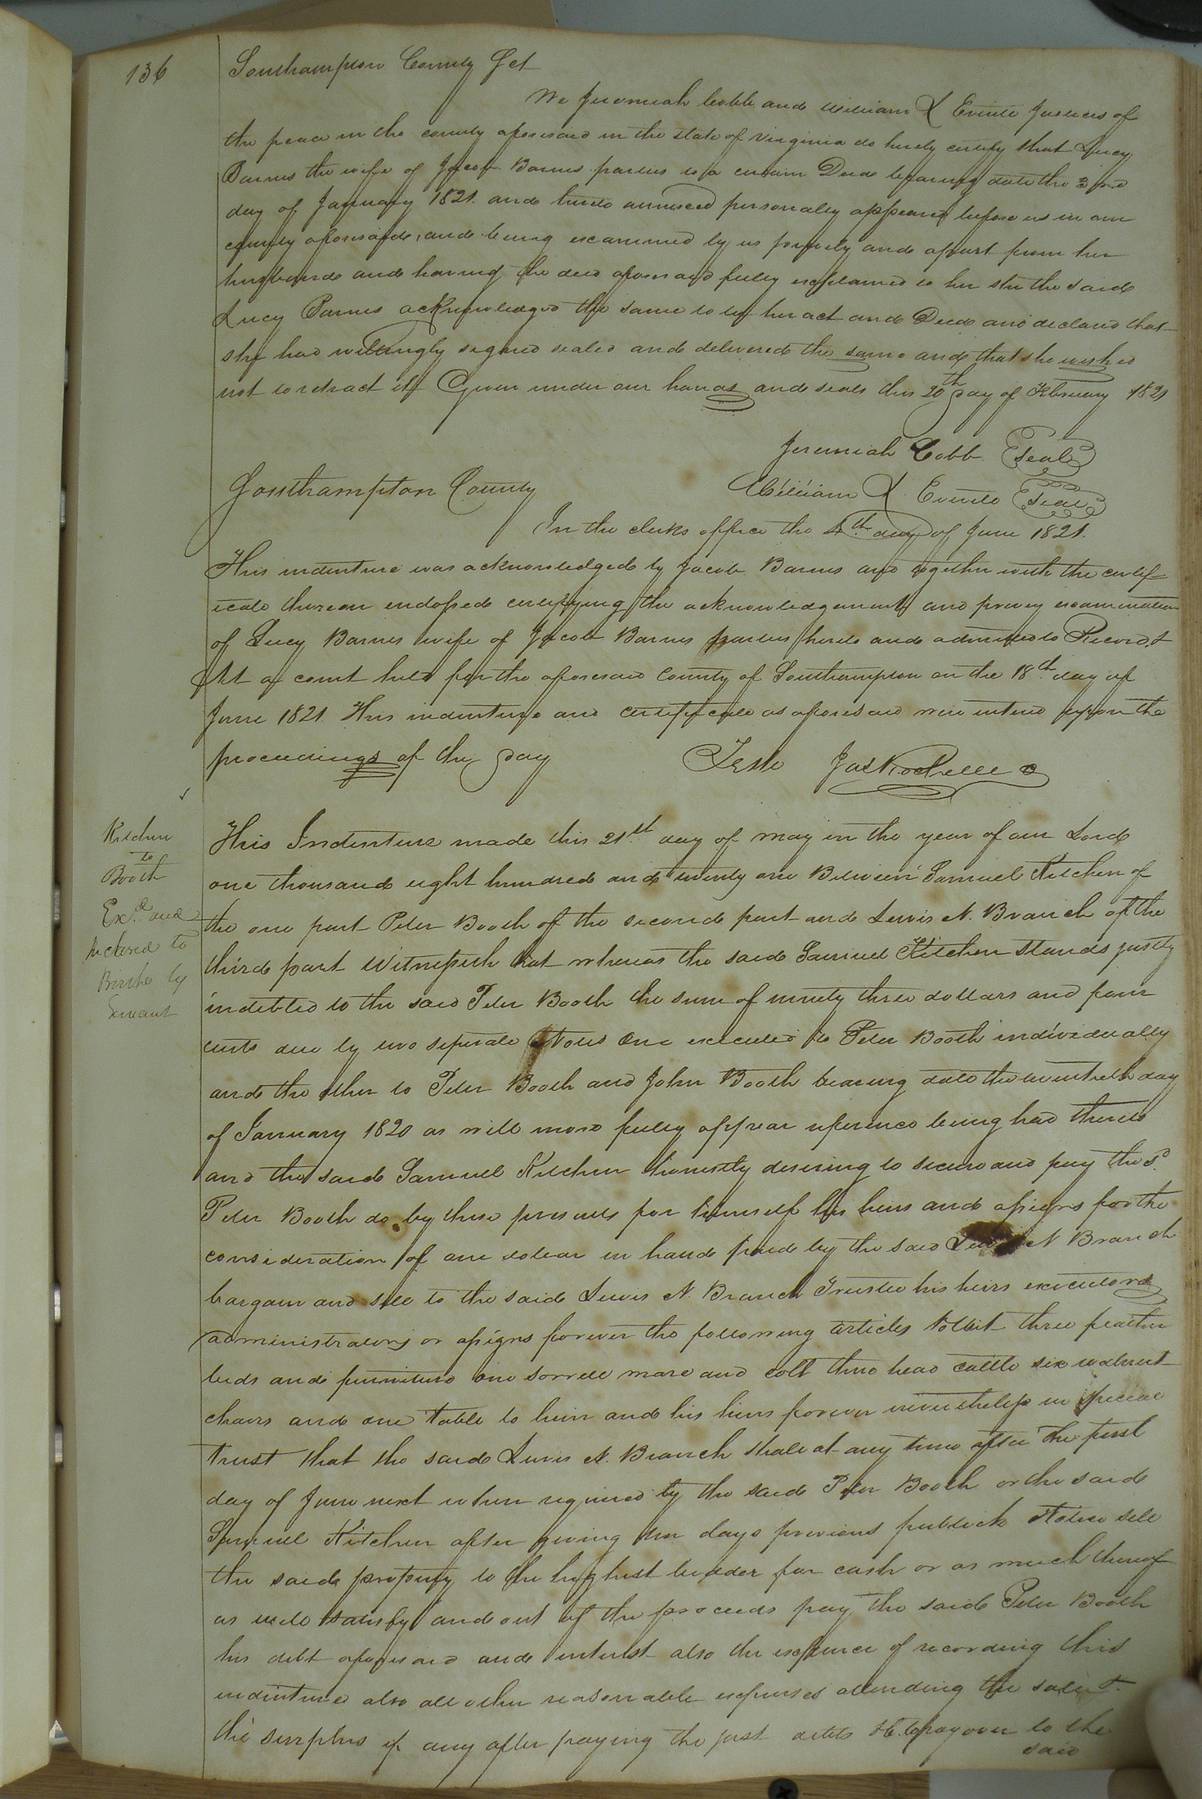 136
Southampton County Sct
We Jeremiah Cobb and William L Everitt Justices of
the peace in the county aforesaid in the state of Virginia do hereby certify that Lucy
Barnes the wife of Jacob Barnes parties to a certain Deed bearing date the
day of January 1821 and hereto annexed personally appeared before us in our
county aforesaid, and being examined by us privily and apart from her
husband and having the deed aforesaid fully explained to her she the said
Lucy Barnes acknowledged the same to be her act and Deed and declared that
she had willingly signed sealed and delivered the same and that she wished
not to retract it Given under our hands and seals this 20th day of February 1821
Jeremiah Cobb Seal
William L Everitt Seal
Southampton County
In the clerks office the 4th day of June 1821.
This indenture was acknowledged by Jacob Barnes and together with the certif=
icate thereon endorsed certifying the acknowledgement and privy examination
of Lucy Barnes wife of Jacob Barnes parties hereto and admitted to Record &
At a court held for the aforesaid County of Southampton on the 18th day of
June 1821 This indenture and certificate as aforesaid were entered upon the
proceedings of the day Teste Jas Rochelle c
Kitchen
to
Booth
Exd. and
delivered to
Booth by
Servant
This Indenture made this 21st day of May in the year of our Lord
one thousand eight hundred and twenty one Between Samuel Kitchen of
the one part Peter Booth of the second part and Lewis N. Branch of the
third part Witnesseth that whereas the said Samuel Kitchen stands justly
indebted to the said Peter Booth the sum of ninety three dollars and four
cents due by two seperate Notes One executed to Peter Booth individually
and the other to Peter Booth and John Booth bearing date the twentieth day
of January 1820 as will more fully appear reference being had thereto
and the said Samuel Kitchen honestly desiring to secure and pay the sd.
Peter Booth do by these presents for himself his heirs and assigns for the
consideration of one dollar in hand paid by the said Lewis N Branch
bargain and sell to the said Lewis N. Branch Trustee his heirs executors
administrators or assigns forever the following articles towit three feather
beds and furniture one sorrell mare and colt three head cattle six walnut
chairs and one Table to him and his heirs forever nevertheless in special
trust that the said Lewis N. Branch shall at any time after the first
day of June next when required by the said Peter Booth or the said
Samuel Kitchen after giving ten days previous publick Notice sell
the said property to the highest bidder for cash or as much thereof
as will satisfy and out of the proceeds pay the said Peter Booth
his debt aforesaid and interest also the expence of recording this
indenture also all other reasonable expenses attending the sale &
the surplus if any after paying the just debts &c to pay over to the
said